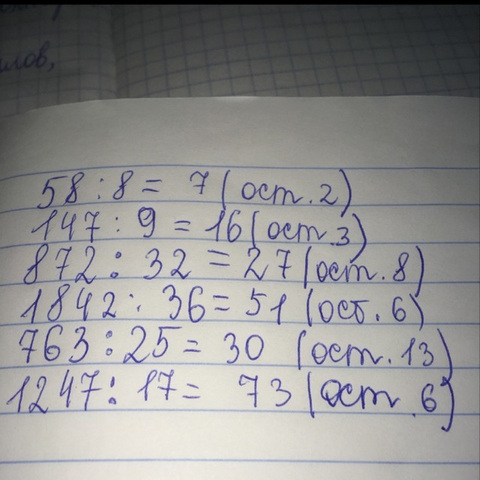 лов,
58 : 8 = 7 (ост. 2)
147 : 9 = 16 (ост. 3)
872 : 32 = 27 (ост. 8)
1842 : 36 = 51 (ост. 6)
763 : 25 = 30 (ост. 13)
1247 : 17 = 73 (ост. 6)